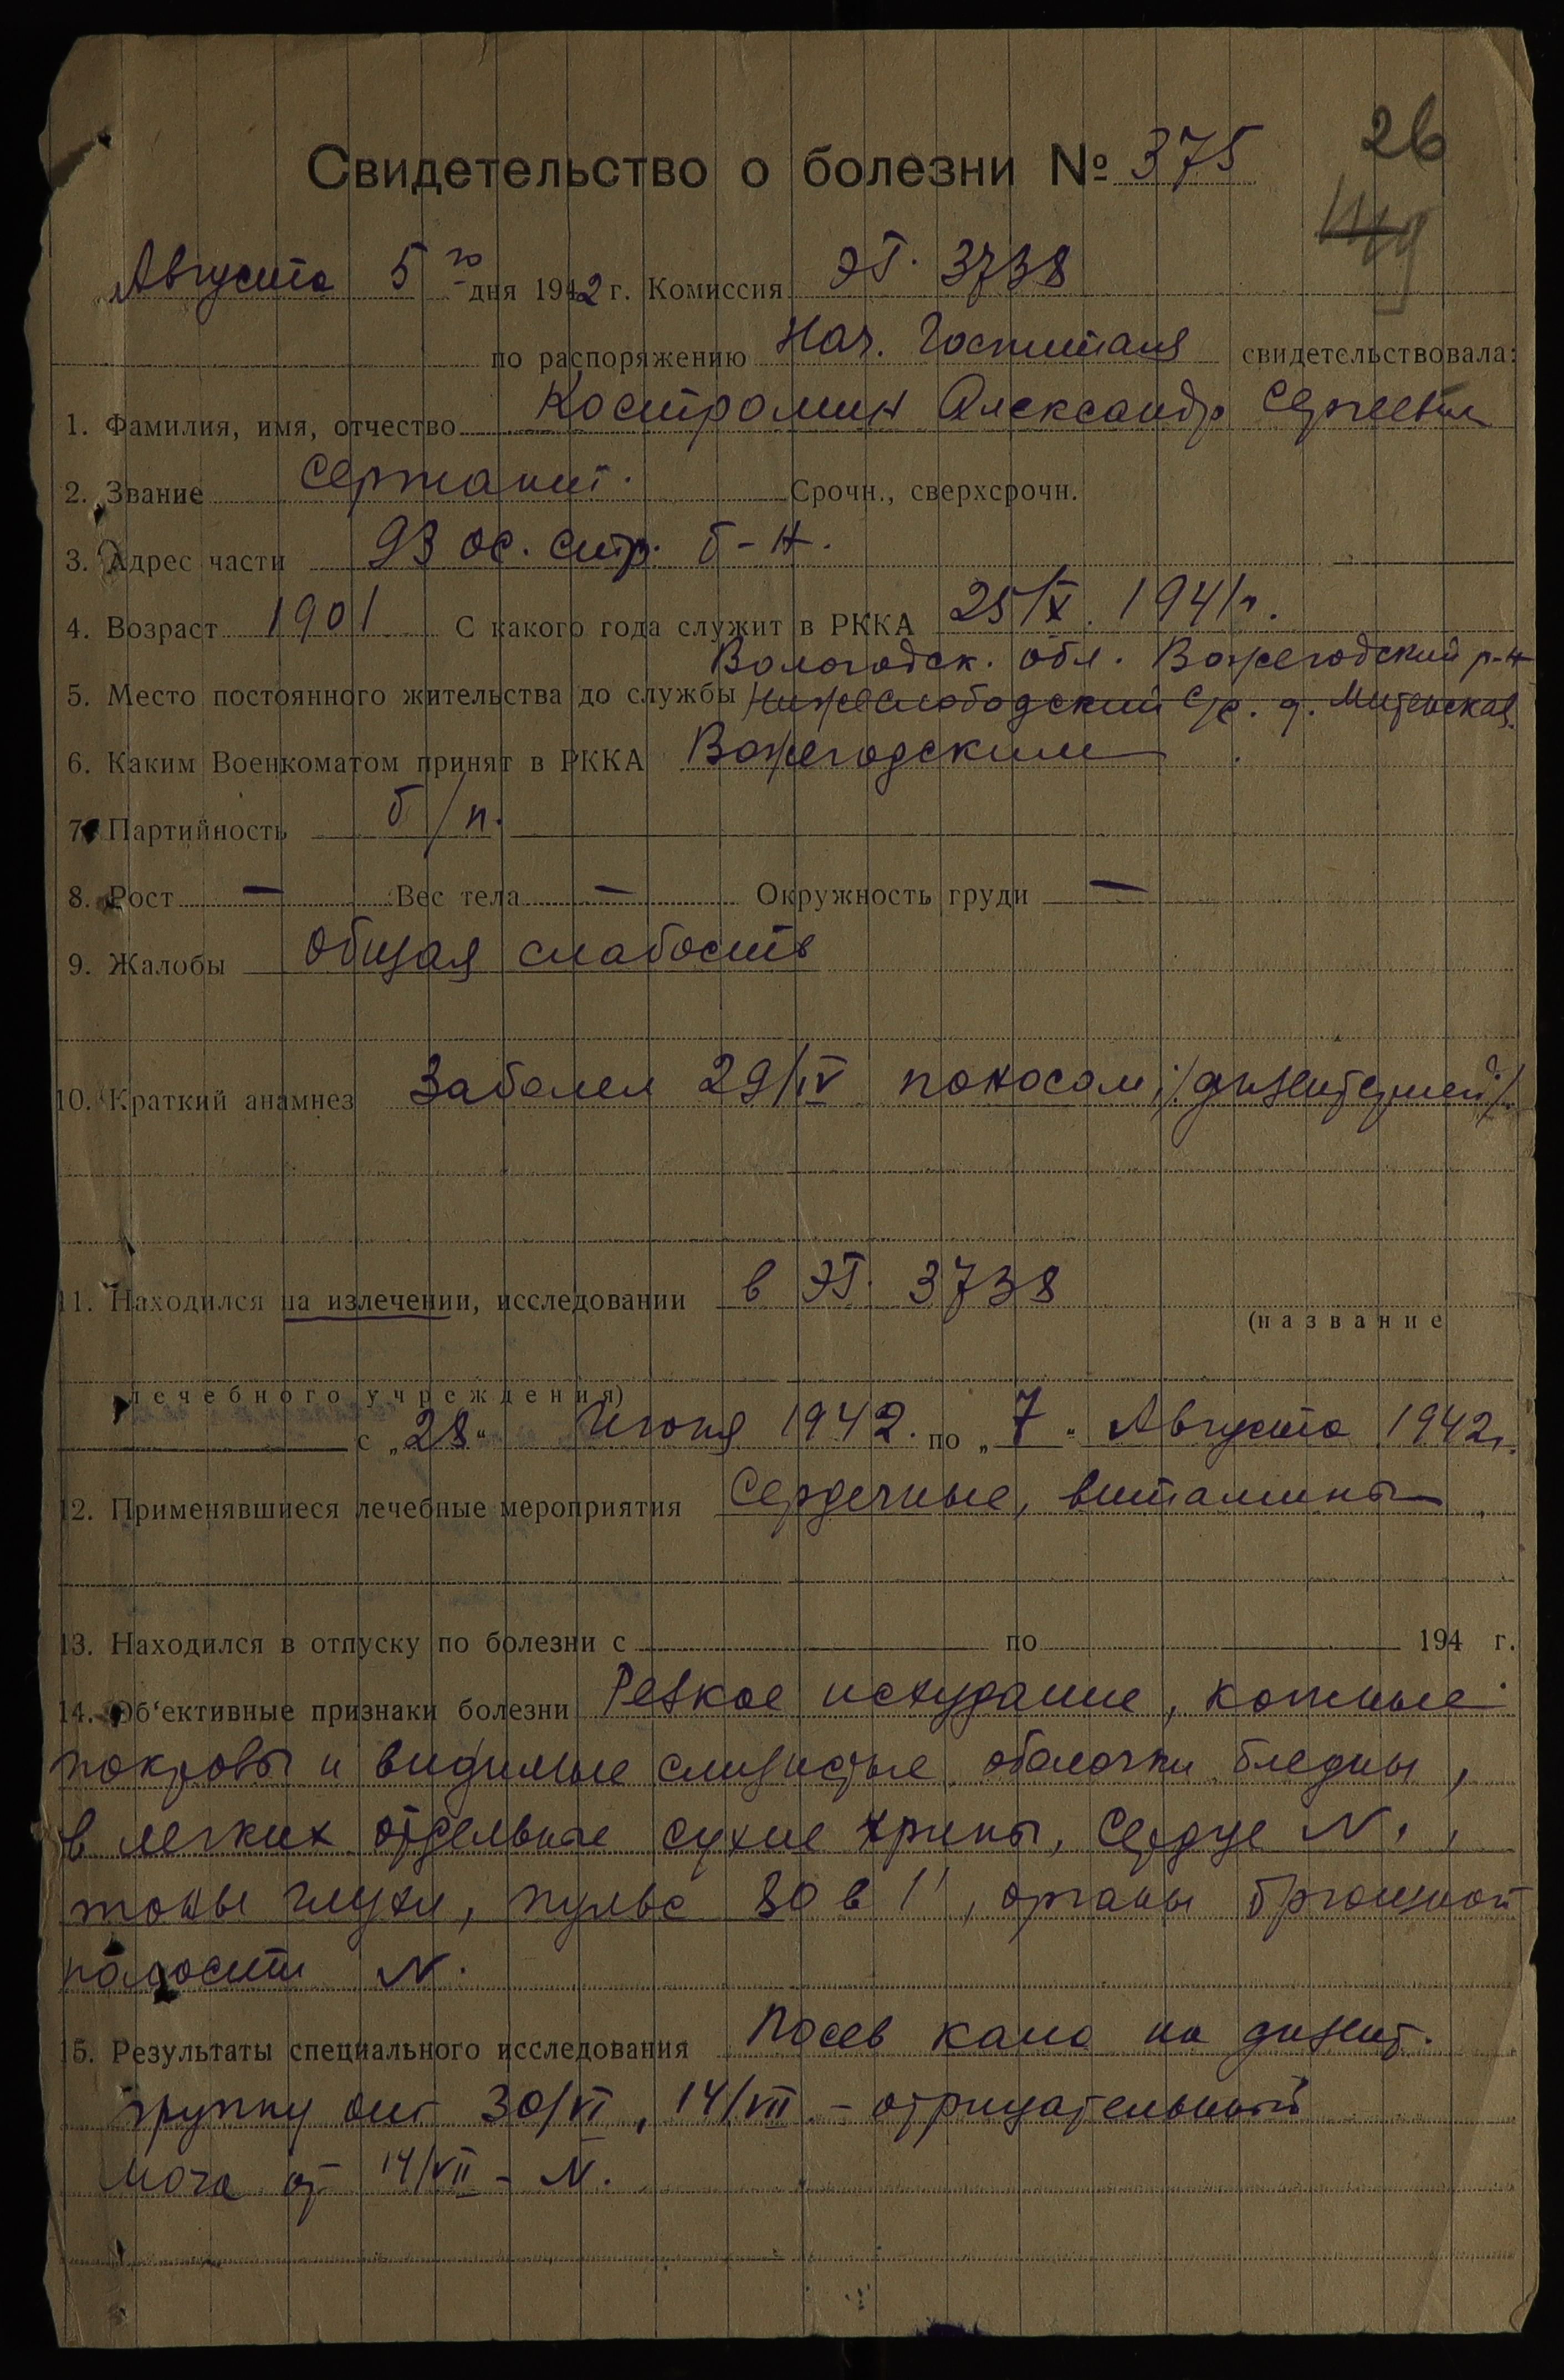 26
Свидетельство о болезни № 375
Августа 5го дня 1942 г. Комиссия ЭГ. 3738
по распоряжению Нач. Госпиталя свидетельствовала:
1. Фамилия, имя, отчество Костромин Александр Сергеевич
2. Звание Сержант. Срочн., сверхсрочн.
3. Адрес части 93 ос. стр. б-н.
4. Возраст 1901 С какого года служит в РККА 25/X. 1941 г.
Вологодск. обл. Вожегодский р-н
5. Место постоянного жительства до службы Нижеслободский с/с. д. Митенская.
6. Каким Военкоматом принят в РККА Вожегодским
7. Партийность б/п.
8. Рост — Вес тела — Окружность груди —
9. Жалобы Общая слабость
10. Краткий анамнез Заболел 29/IV поносом /дизентерией/.
11. Находился на излечении, исследовании в ЭГ. 3738
(название
лечебного учреждения)
с „28“ Июня 1942. по „7“ Августа 1942 г.
12. Применявшиеся лечебные мероприятия Сердечные, витамины
13. Находился в отпуску по болезни с по 194 г.
14. Об‘ективные признаки болезни Резкое исхудание, кожные
покровы и видимые слизистые оболочки бледны,
в легких отдельные сухие хрипы, сердце N.,
тоны глухи, пульс 80 в 1', органы брюшной
полости N.
15. Результаты специального исследования Посев кала на дизент.
группу от 30/VI, 14/VII – отрицательный
Моча от 14/VII – N.